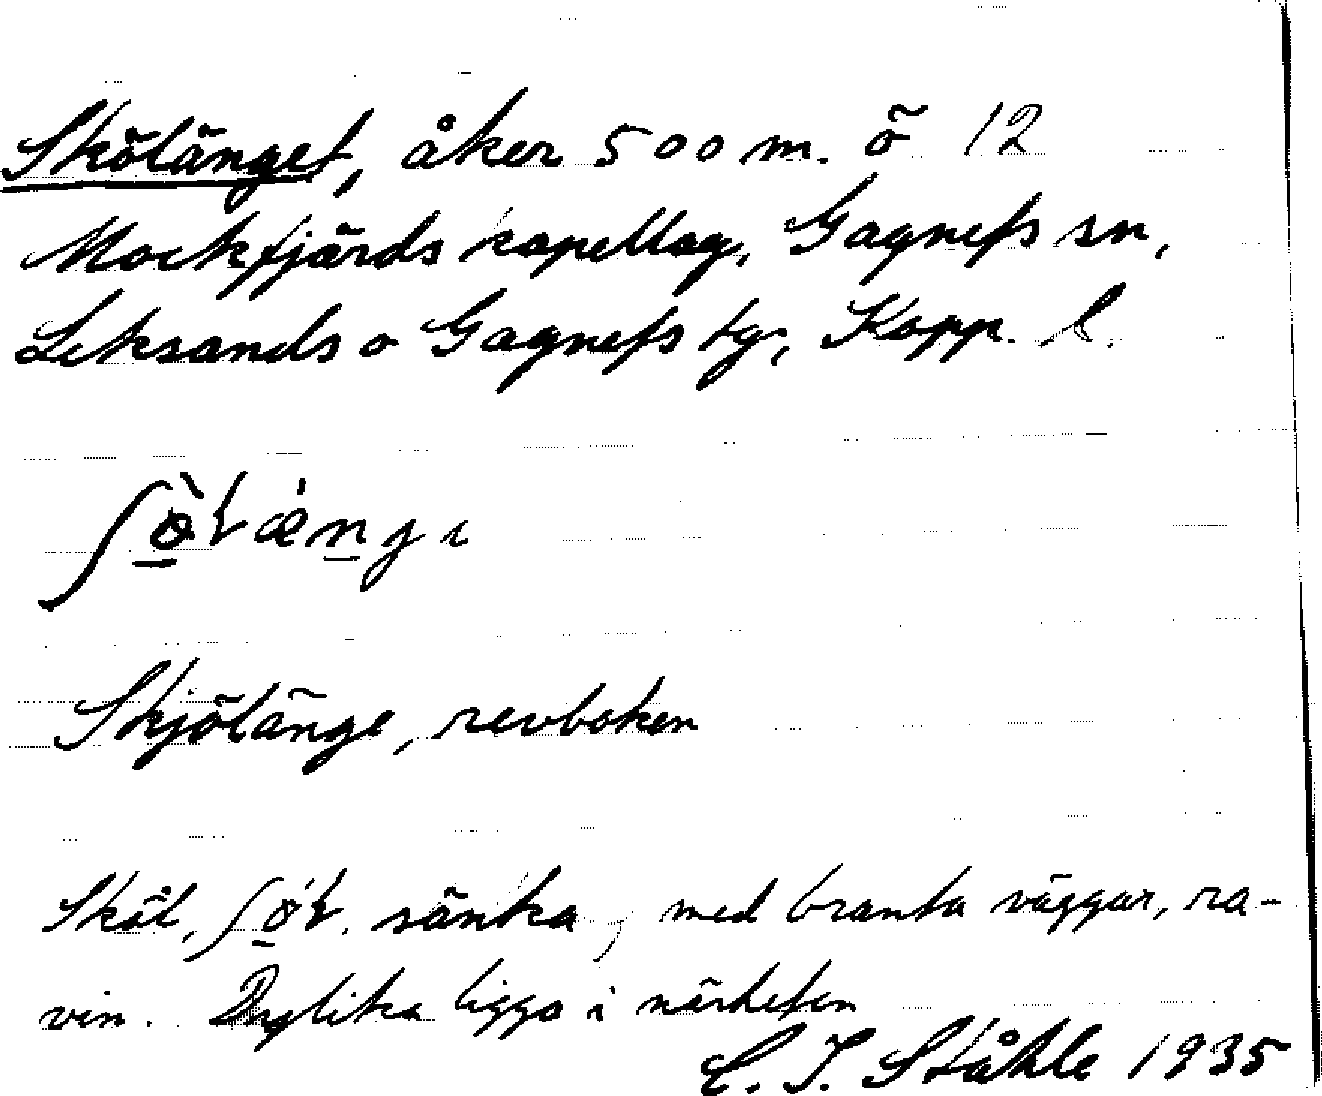 Skölänget, åker 500 m. ö 12
Mockfjärds kapellag, Gagnefs sn,
Leksands o Gagnefs tg, Kopp. l.
ʃø̀ɽæ̀nɡɩ
Skjölänge, revboken
Sköl, ʃø̀ɽ. sänka, med branta väggar, ra-
vin. Dylika ligga i närheten
C. I. Ståhle 1935